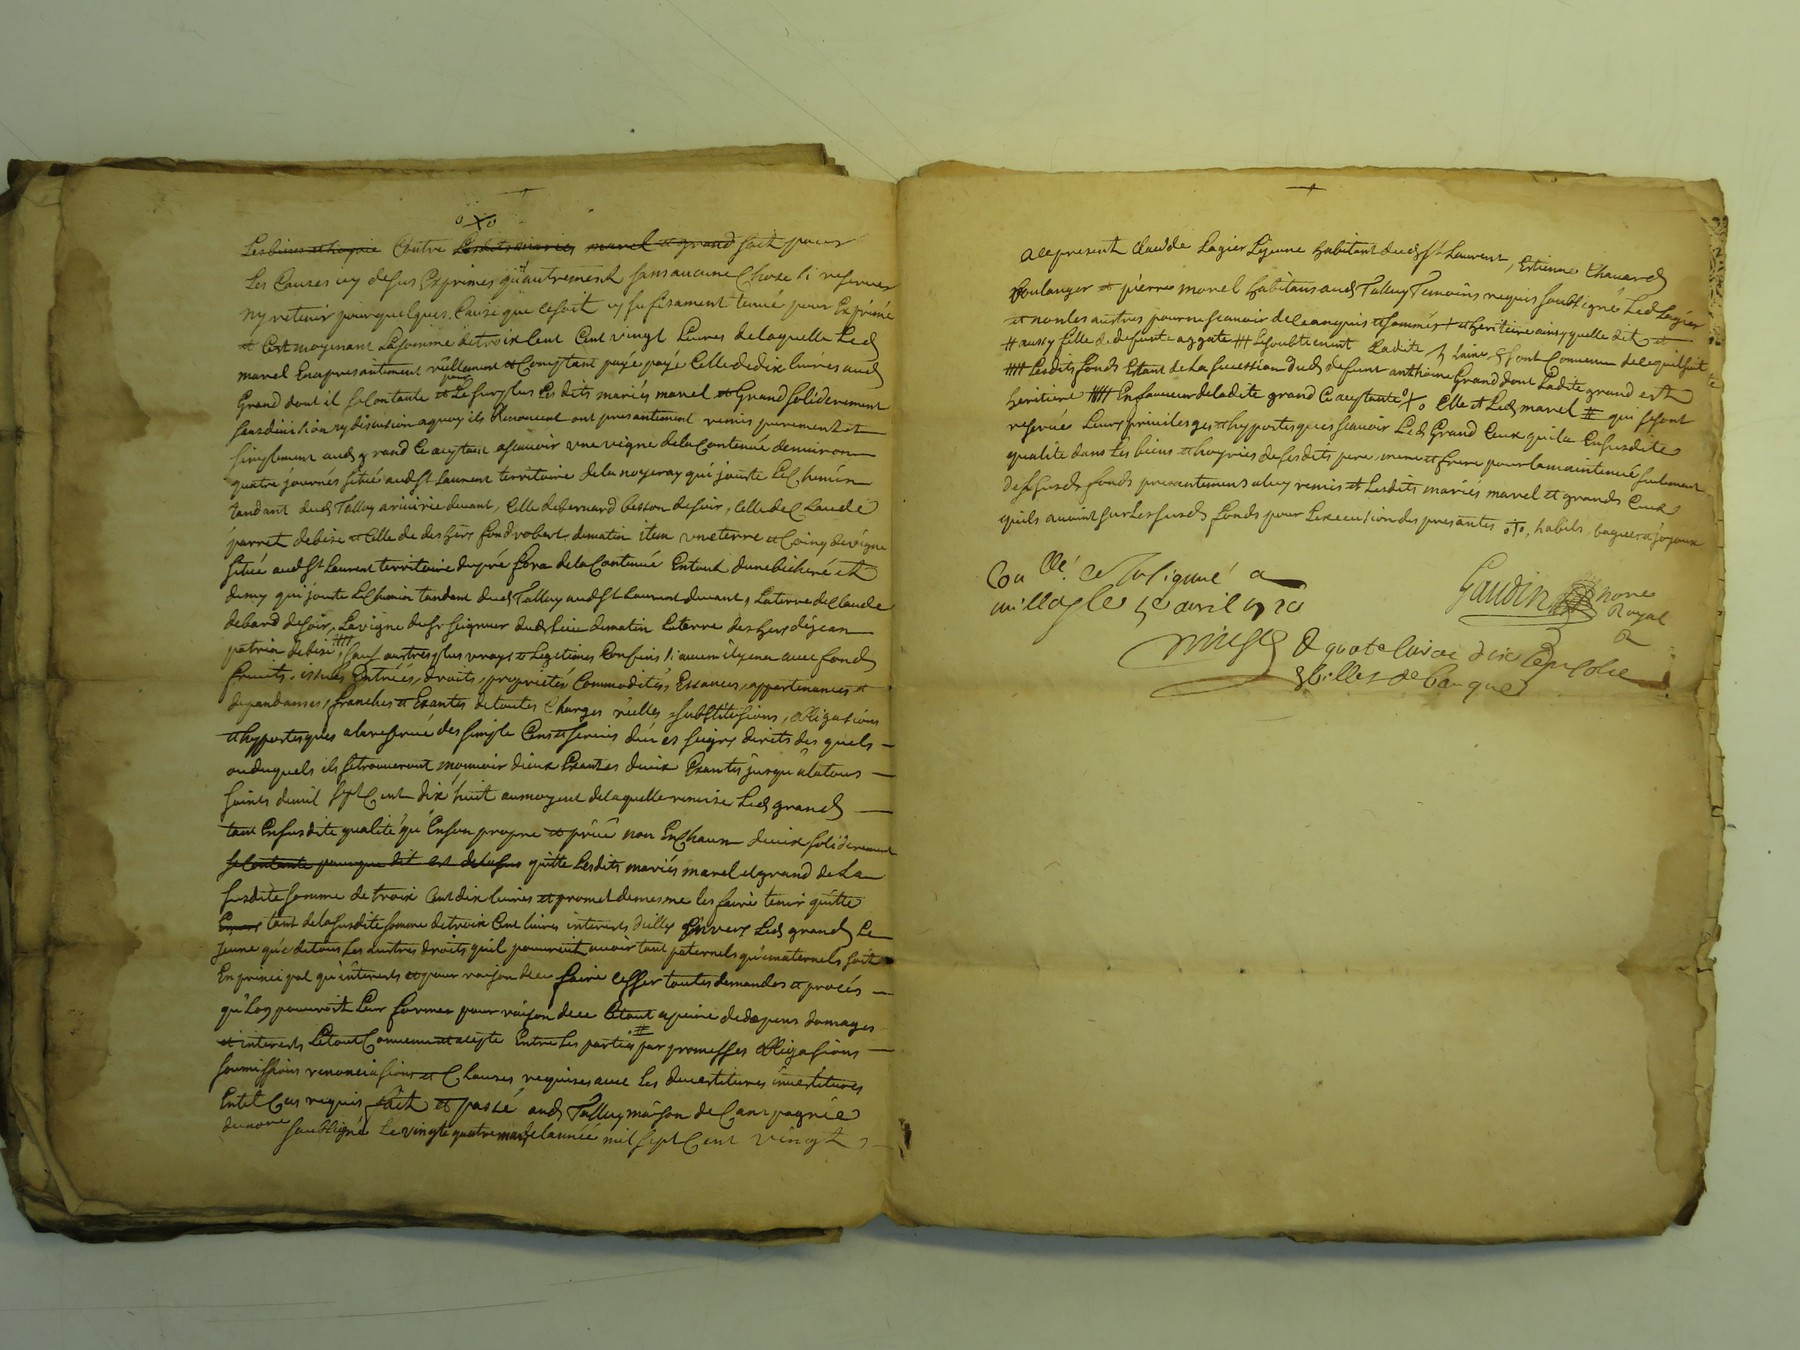 oXo
Les biens et hoyrie Contre Lesdits mariés marel et grand soit pour
Les Causes cy desus Exprimés qu'autrement sans aucune Chose si reserver
ny retenir pour quelques Cause que ce soit cy sufisament tenue pour Exprimé
et C'est moyenant La somme de trois Cent Cent vingt Livres de laquelle Led
marel En a presantement réellement et Comptant payé payé Celle de dix livres aud
Grand dont il se Contante et pour Le surplus Lesdits mariés marel et Grand soliderement
sans division ny discution a quoy ils Renoncent ont presantement remis purement et
simplement aud grand Ce aceptant ascavoir une vigne de la Contenue denviron
quatre journés sitüé aud St Laurent territoire de la noyeray qui jouste Le Chemin
tandant dud Talluy a rivirie devant, Celle de bernard besson de soir, Celle de Claude
parret de bize et Celle de des hers fond robert, de matin item une terre et Coing de vigne
sitüé aud St Laurent territoire du pré fora de la Contenue En tout dune bicheré et
demy qui jouste Le Chemin tandant dud Talluy aud St Laurent devant, La terre de Claude
debard de soir, La vigne du Sr seigneur dud Lieu de matin La terre des hers de jean
patria de bize #### sauf autres plus vrays et Legitimes Confins si aucun il y en a avec fond
fruits, issues Entrées, droits, proprietés Commodités, Essances, appartenances et
dependances, franches et Exantes de toutes Charges réelles substitusions, obligasions
et hyppoteques a la reserue des simple Cens et servis düs es seigrs directs des quels
ou duquels ils se trouveront mouvoir d'eux Exantes d'eux Exantés jusqu'a la tous
saints de mil sept Cent dix huit au moyent de laquelle remise Led grand
tant En susdite qualité qu'En son propre et privé nom En Chacun d'eux soliderement
se Contante pour que dit est de la sus quitte Lesdits mariés marel et grand de La
susdite somme de trois Cent dix livres et promet de mesme les faire tenir quitte
tant de la susdite somme de trois Cent livres interests d'icelle Envers Led grand Le
jeune que de tous Les autres droits quil pourroit avoir tant paternels que maternels soit
En principal qu'interests et pour raison de ce faire cesser toutes demandes et procés
qu'Los pourroit Leur former pour raison de ce Letout a peine de depens domages
et interests Letout Convenu et acepte Entre Les parties # par promesses obligasions
soumissions renonciasions et Clauses requises avec Les devestitures invêstitures
En tel Cas requis fait et passé aud Talluy maison de Campagnie
du nore soubsigné Le vingte quatre mars de L'année mil sept Cent vingt
a ce present Claude Lagier Lejeune habitant dud St Laurent, Estienne Chavard
boulanger et pierre marel habitans aud Talluy Temoins requis soubsigné Led Lagier
et non les autres pour ne scavoir de Ce anquis et sommés + et heritiere ainsy quelle dit et
# aussy fille de defunte aggate ### Lesoubtienent Ladite
#### Lesdits fonds Estant de La succession dud defunt anthoine Grand dont Ladite grand est
heritiere ##### En faveur de ladite grand Ce aceptante oXo Elle et Led marel # qui se sont
reservé Leurs privileges et hyppoteques scavoir Led Grand Ceux quil a En susdite
qualite dans Les biens et hoyries de sesdits pere, mere et frere pour la maintenüe seulement
desd susds fonds presentement a luy remis et Lesdits mariés marel et grands Ceux
quils avoint sur Les susds fonds pour Lexecusion des presantes oXo, habits, bagues et joyaux
Con llé. et Insigniné a
le avril 1720
Gaudin nore
Royal